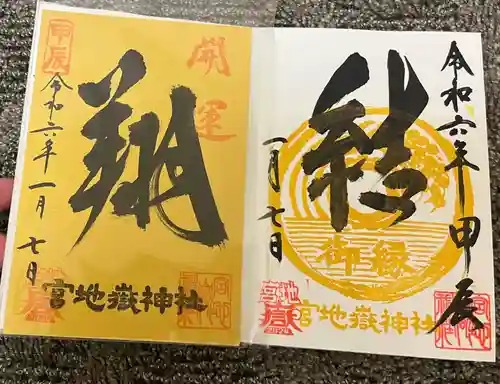 甲辰
開運
翔
令和六年一月七日
宮地嶽神社
令和六年甲辰
結
一月七日
御縁
宮地嶽神社